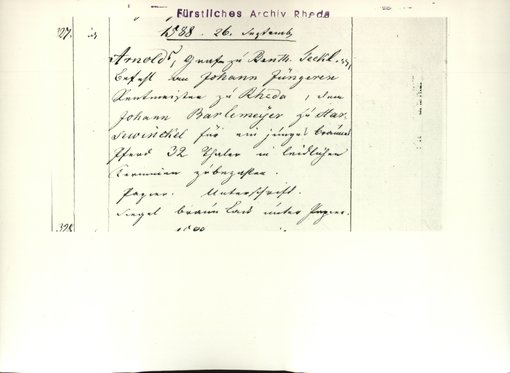 Fürstliches Archiv Rheda
327.
1588. 26. Septemb.
Arnold, Graf zu Benth. Teckl.
Befehl an Johann Jüngeren
Rentmeister zu Rheda, dem
Johann Barlemeyer zu Har
sewinckel für ein junges braunes
Pferd 32 Thaler in leidlichen
Terminen zu bezahlen.
Papier. Unterschrift.
Siegel braun Lack unter Papier.
328